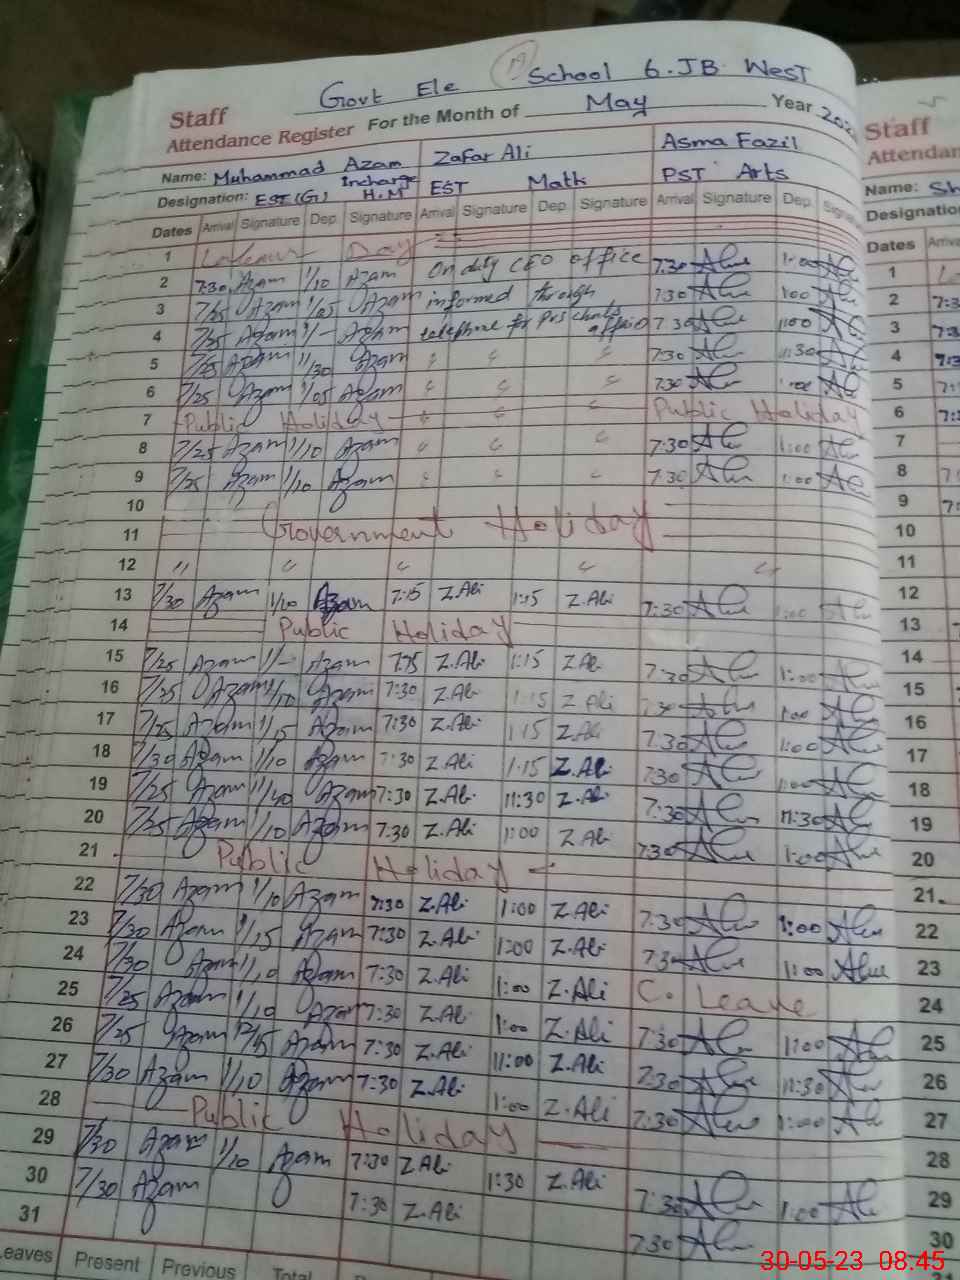 Govt Ele School 6.JB West
Staff
Attendance Register For the Month of May Year
Name: Muhammad Azam Zafar Ali Asma Fazil
Designation: EST (G) Incharge H.M EST Math PST Arts
Dates Arrival Signature Dep. Signature Arrival Signature Dep. Signature Arrival Signature Dep.
1 Day
2 7:30 Azam 1/10 Azam On duty CEO office 7:30 1:00
3 7/25 Azam 1/05 Azam informed through 7:30 1:00
4 7/25 Azam 1/- Azam telephone for 7:30 1:00
5 7/25 Azam 11/30 Azam 7:30 11:30
6 7/25 Azam 1/05 Azam 7:30 1:00
7 Public Holiday Public Holiday
8 7/25 Azam 1/10 Azam 7:30 1:00
9 7/25 Azam 1/10 Azam 7:30 1:00
10
11 Government Holiday
12 "
13 7/30 Azam 1/10 Azam 7:15 Z.Ali 1:15 Z.Ali 7:30 1:00
14 Public Holiday
15 7/25 Azam 1/- Azam 7:15 Z.Ali 1:15 Z.Ali 7:30 1:00
16 7/25 Azam 1/10 Azam 7:30 Z.Ali 1:15 Z.Ali 7:30 1:00
17 7/25 Azam 1/15 Azam 7:30 Z.Ali 1:15 Z.Ali 7:30 1:00
18 7/30 Azam 1/10 Azam 7:30 Z.Ali 1:15 Z.Ali 7:30 1:00
19 7/25 Azam 11/40 Azam 7:30 Z.Ali 11:30 Z.Ali 7:30 11:30
20 7/25 Azam 1/10 Azam 7:30 Z.Ali 1:00 Z.Ali 7:30 1:00
21 Public Holiday
22 7/30 Azam 1/10 Azam 7:30 Z.Ali 1:00 Z.Ali 7:30 1:00
23 7/30 Azam 1/15 Azam 7:30 Z.Ali 1:00 Z.Ali 7:30 1:00
24 7/30 Azam 1/10 Azam 7:30 Z.Ali 1:00 Z.Ali C. Leave
25 7/25 Azam 1/10 Azam 7:30 Z.Ali 1:00 Z.Ali 7:30 1:00
26 7/25 Azam 12/15 Azam 7:30 Z.Ali 11:00 Z.Ali 7:30 11:30
27 7/30 Azam 1/10 Azam 7:30 Z.Ali 1:00 Z.Ali 7:30 1:00
28 Public Holiday
29 7/30 Azam 1/10 Azam 7:30 Z.Ali 1:30 Z.Ali 7:30 1:00
30 7/30 Azam 7:30 Z.Ali 7:30
31
Leaves Present Previous Total
Staff
Attendan
Name: Sh
Designation
Dates
1
2 7:3
3 7:3
4
5
6
7
8
9
10
11
12
13
14
15
16
17
18
19
20
21
22
23
24
25
26
27
28
29
30
30-05-23 08.45